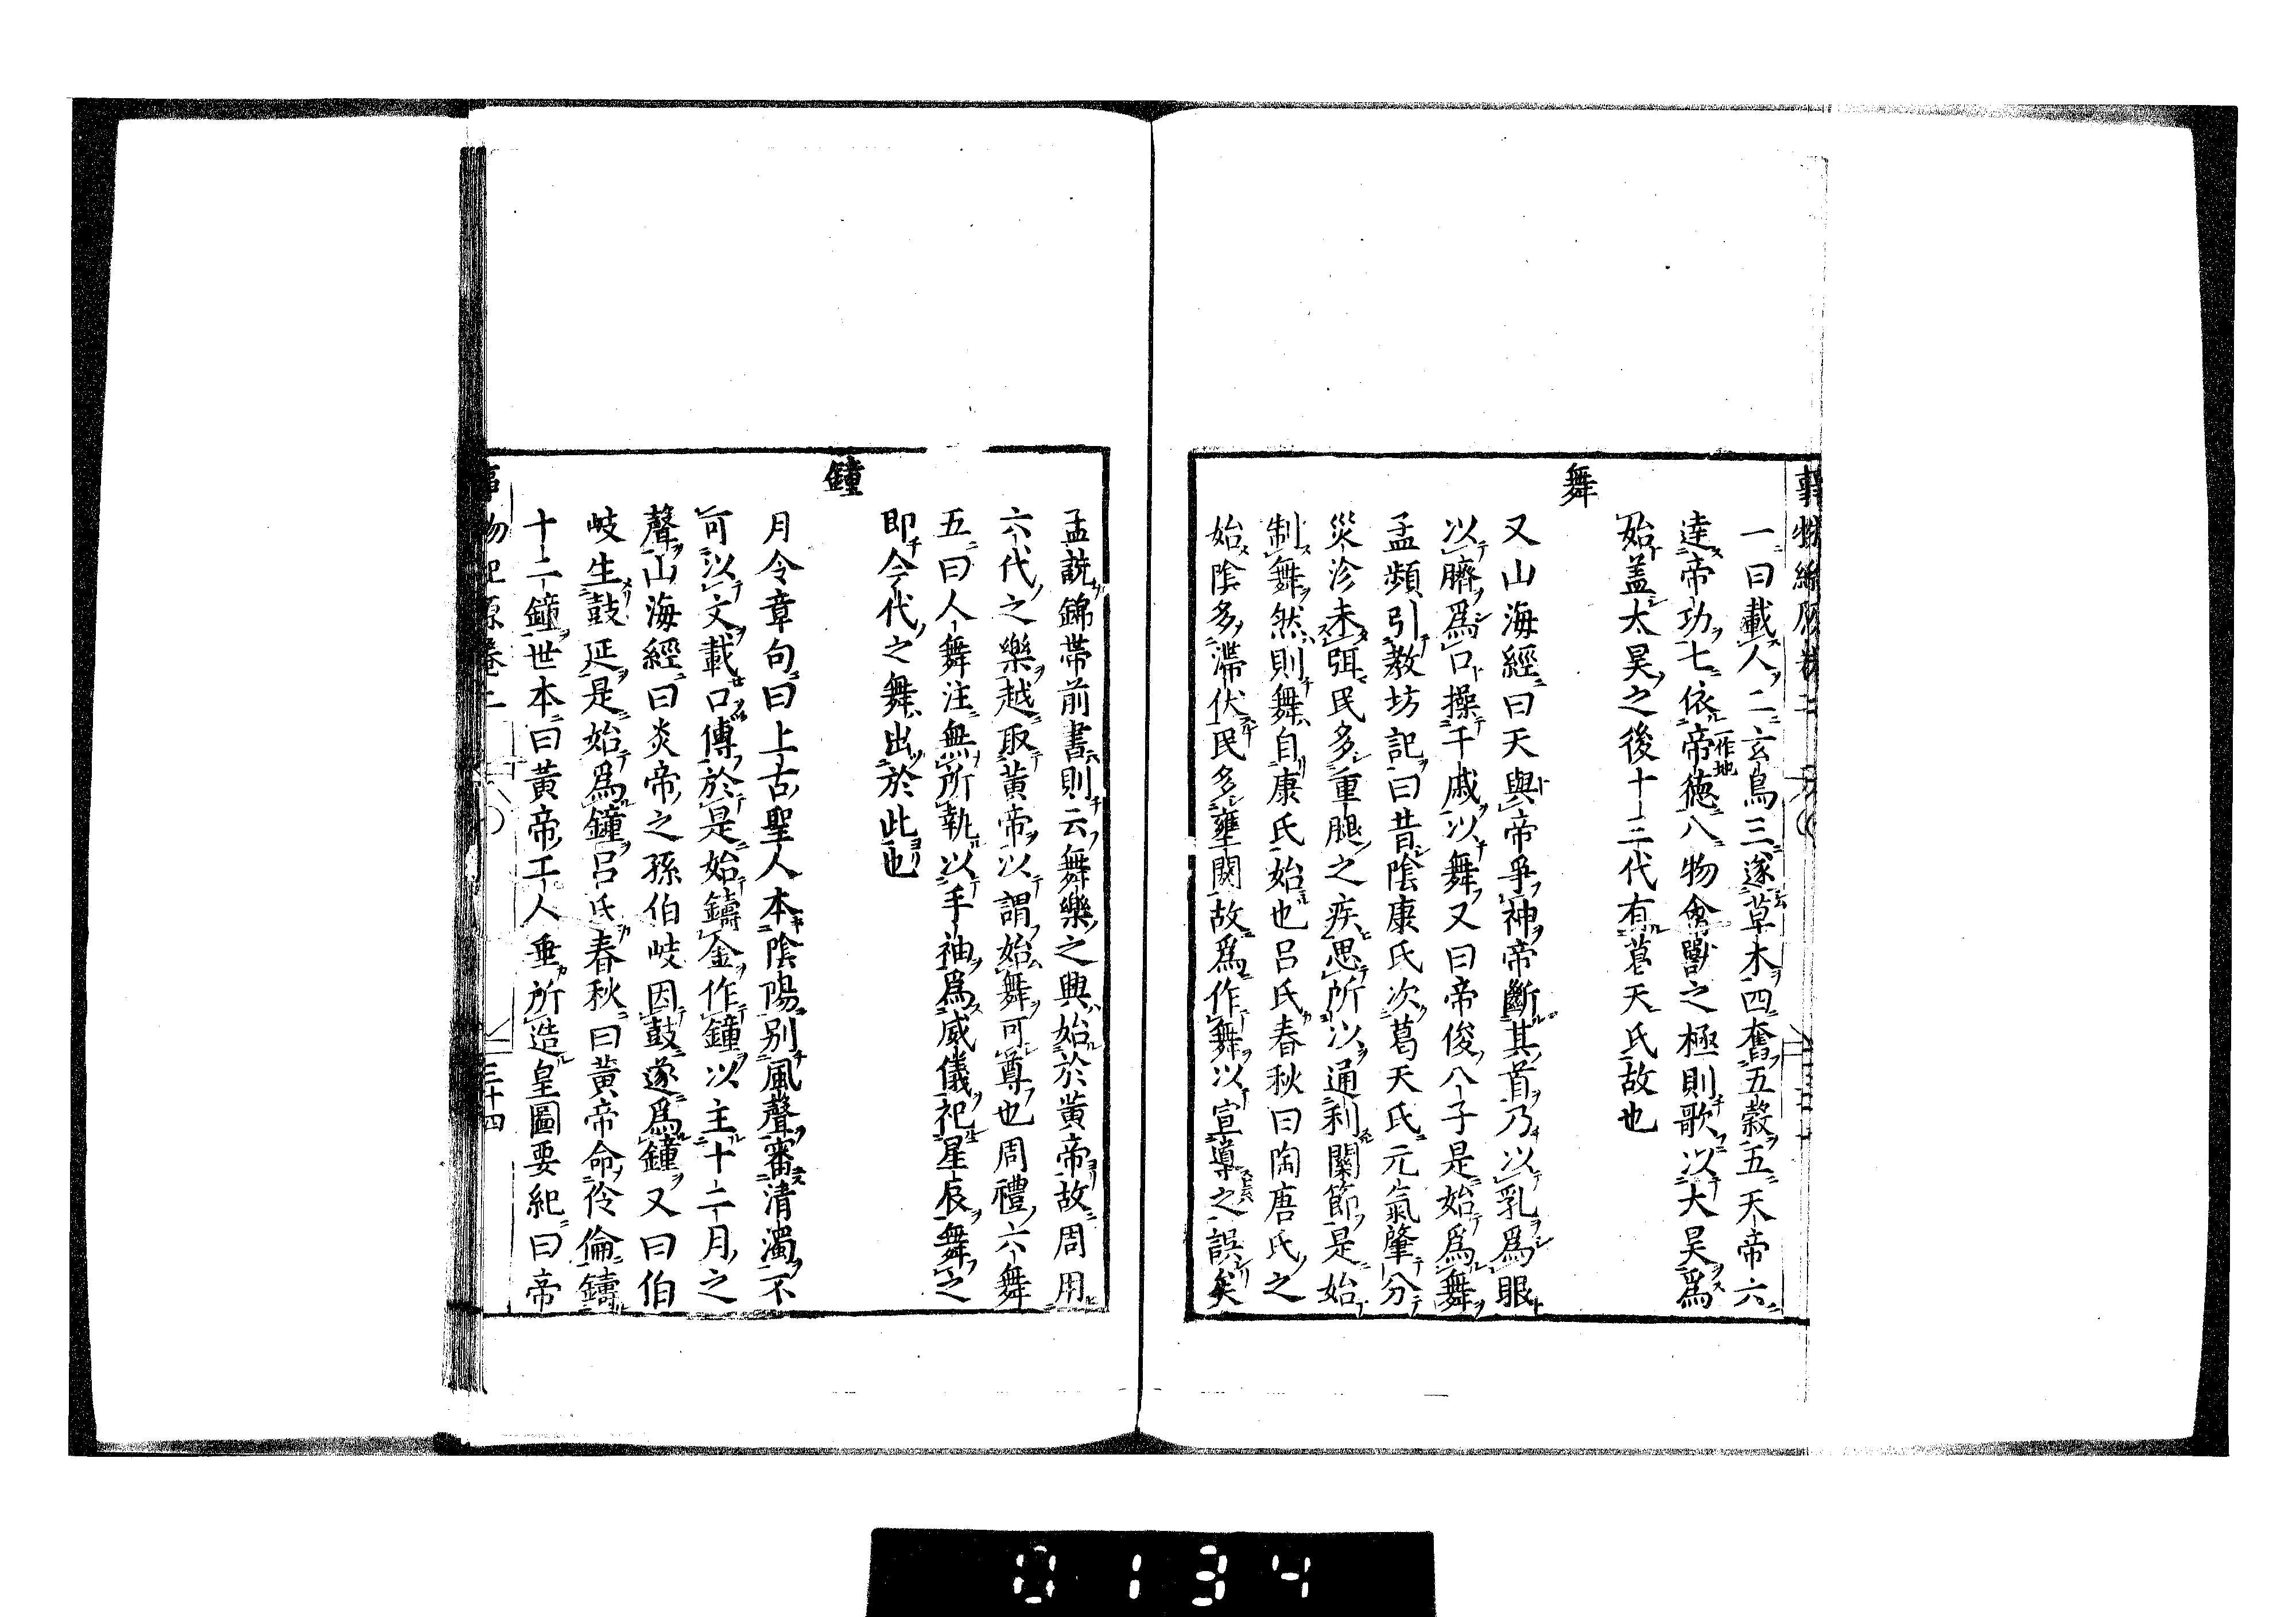 一曰載人二玄鳥三遂草木四奮五穀五天帝六
達帝功七依帝一作地德八物禽獸之極則歌以大昊爲
始盖太昊之後十二代有葛天氏故也
舞
又山海經曰天與帝爭神帝斷其首乃以乳爲眼
以臍爲口操干戚以舞又曰帝俊八子是始爲舞
孟頻引教坊記曰昔陰康氏次葛天氏元氣肇分
災沴未弭民多重膇之疾思所以通利關節是始
制舞然則舞自康氏始也呂氏春秋曰陶唐氏之
始陰多滯伏民多壅閼故爲作舞以宣導之誤矣
孟說錦帶前書則云舞樂之興始於黃帝故周用
六代之樂越取黃帝以謂始舞可尊也周禮六舞
五曰人舞注無所執以手袖爲威儀祀星辰舞之
即今代之舞出於此也
鐘
月令章句曰上古聖人本陰陽別風聲審清濁不
可以文載口傳於是始鑄金作鐘以主十二月之
聲山海經曰炎帝之孫伯岐因鼓遂爲鐘又曰伯
岐生鼓延是始爲鐘呂氏春秋曰黃帝命伶倫鑄
十二鐘世本曰黃帝工人垂所造皇圖要紀曰帝
三十四
0134